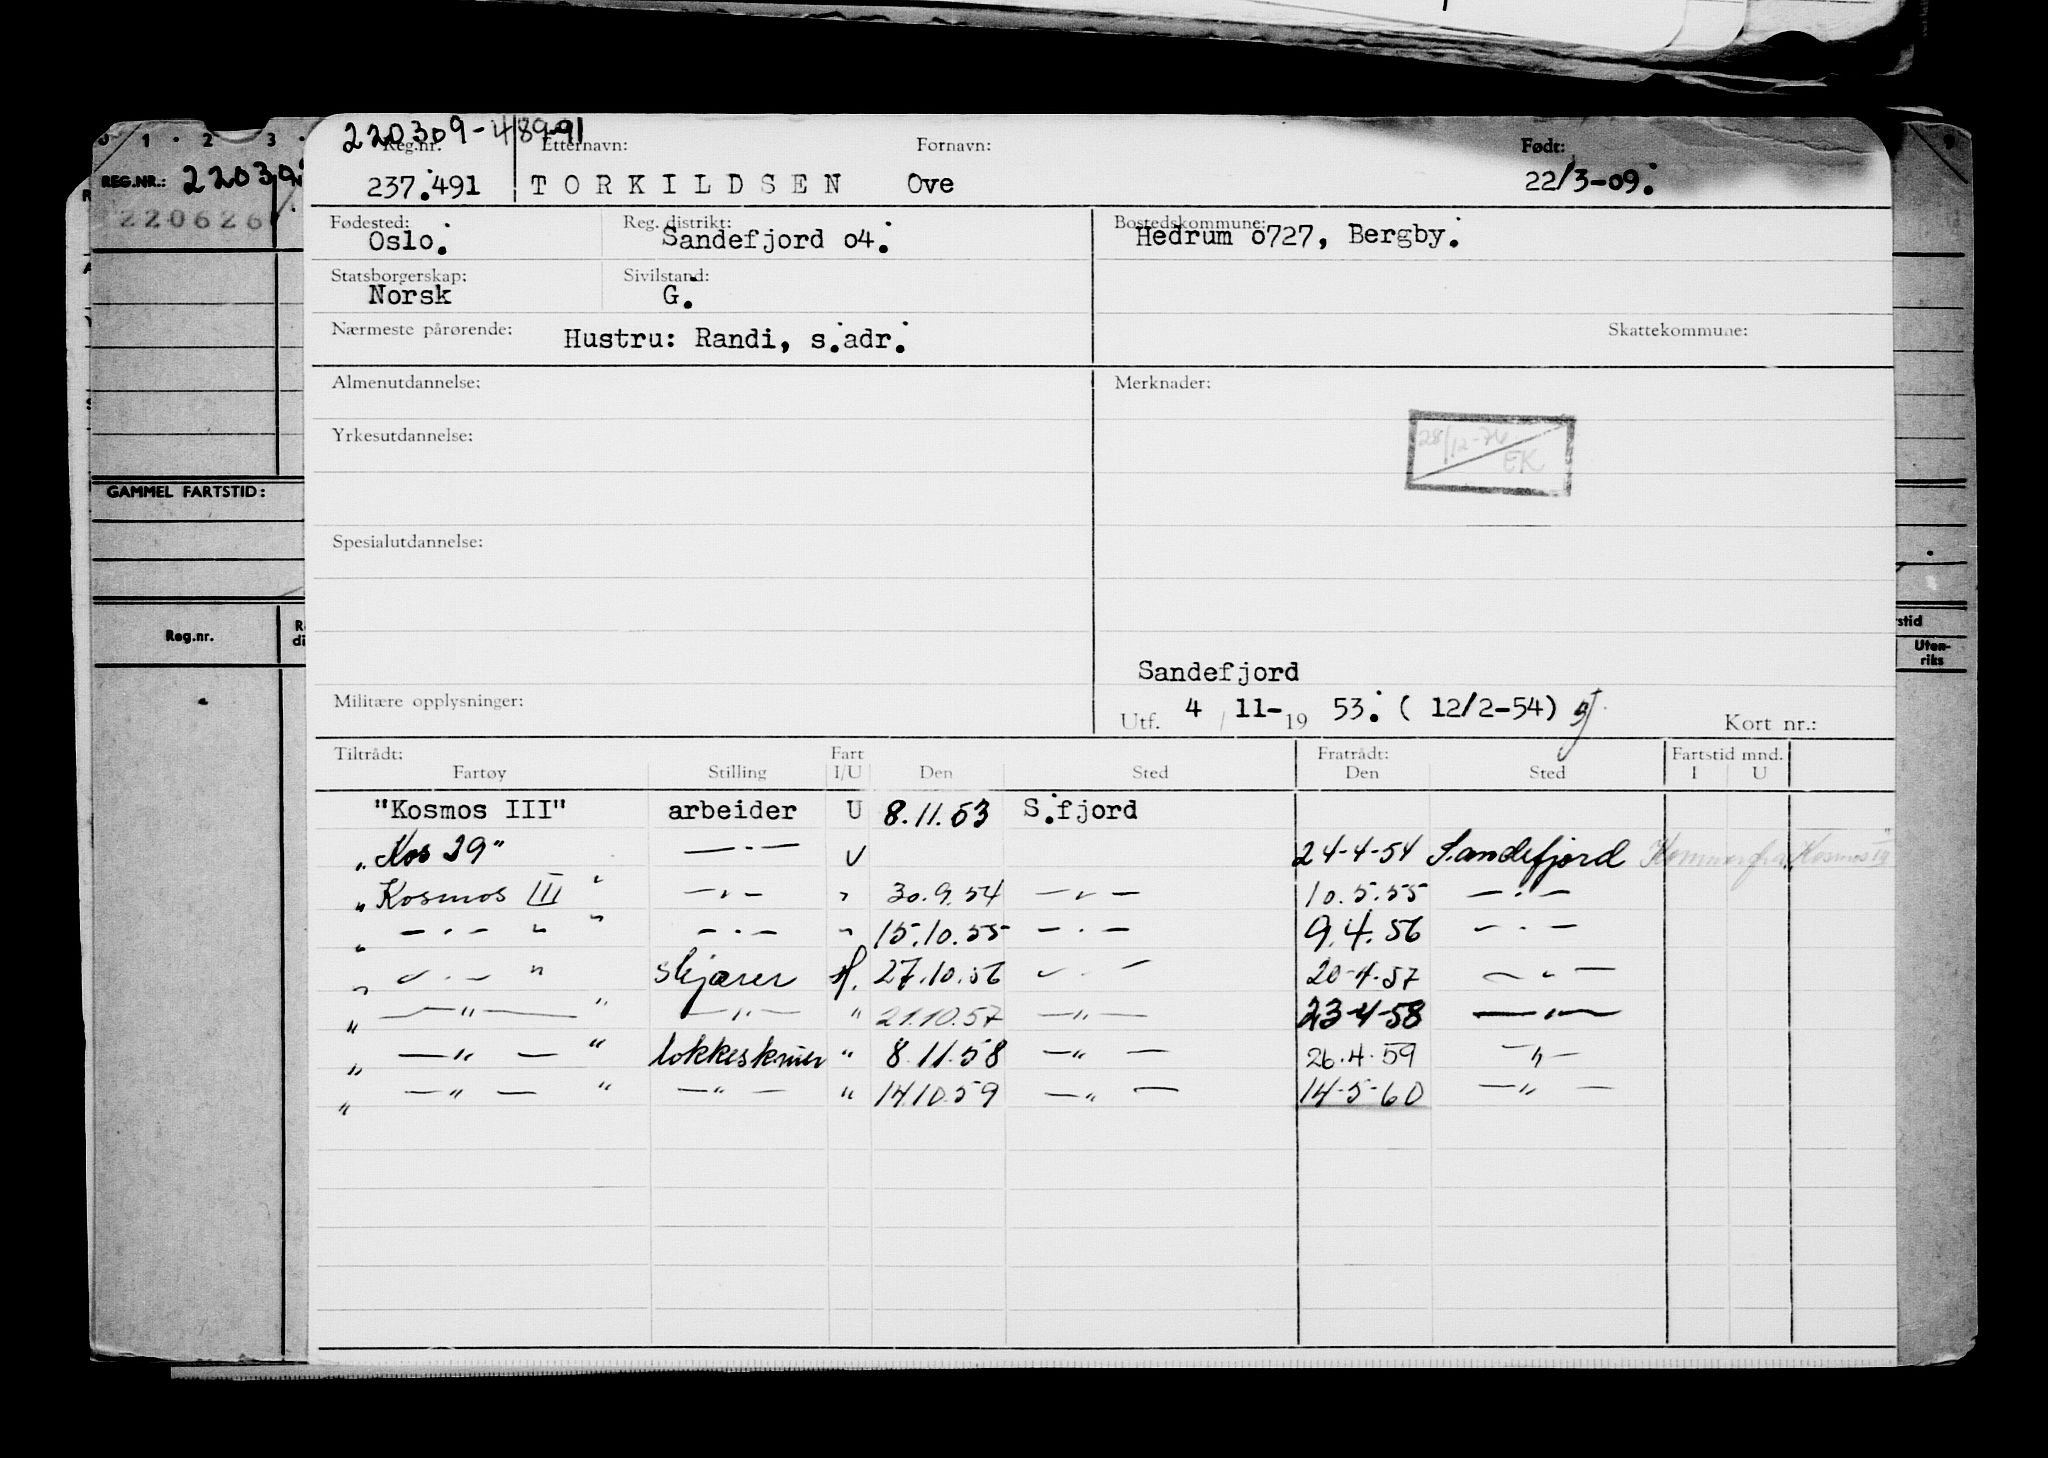 220309-48991
0 1 · 2 3 ·
REG.NR.: 220309
220626
GAMMEL FARTSTID:
Reg.nr.
stid
Uten-
riks
Reg.nr. Etternavn: Fornavn: Født:
237.491 TORKILDSEN Ove 22/3-09.
Fødested: Reg. distrikt: Bostedskommune:
Oslo. Sandefjord 04. Hedrum 0727, Bergby.
Statsborgerskap: Sivilstand:
Norsk G.
Nærmeste pårørende: Hustru: Randi, s.adr. Skattekommune:
Almenutdannelse: Merknader:
28/12-76
EK
Yrkesutdannelse:
Spesialutdannelse:
Sandefjord
Militære opplysninger: Utf. 4 / 11- 19 53. ( 12/2-54) Kort nr.:
Tiltrådt: Fart Fratrådt: Fartstid mnd.
Fartøy Stilling I/U Den Sted Den Sted I U
"Kosmos III" arbeider U 8.11.53 S.fjord
"Kos 29" —·— U 24-4-54 Sandefjord Kommer fra "Kosmos III"
"Kosmos III" —·— " 30.9.54 —·— 10.5.55 —·—
" —·— " " —·— " 15.10.55 —·— 9.4.56 —·—
" —·— " skjærer 27.10.56 —·— 20-4-57 —·—
" —"— " —"— " 21.10.57 —"— 23-4-58 —"—
" —"— " kokkeskriver " 8.11.58 —"— 26.4.59 —"—
" —"— " —"— " 14.10.59 —"— 14-5-60 —"—